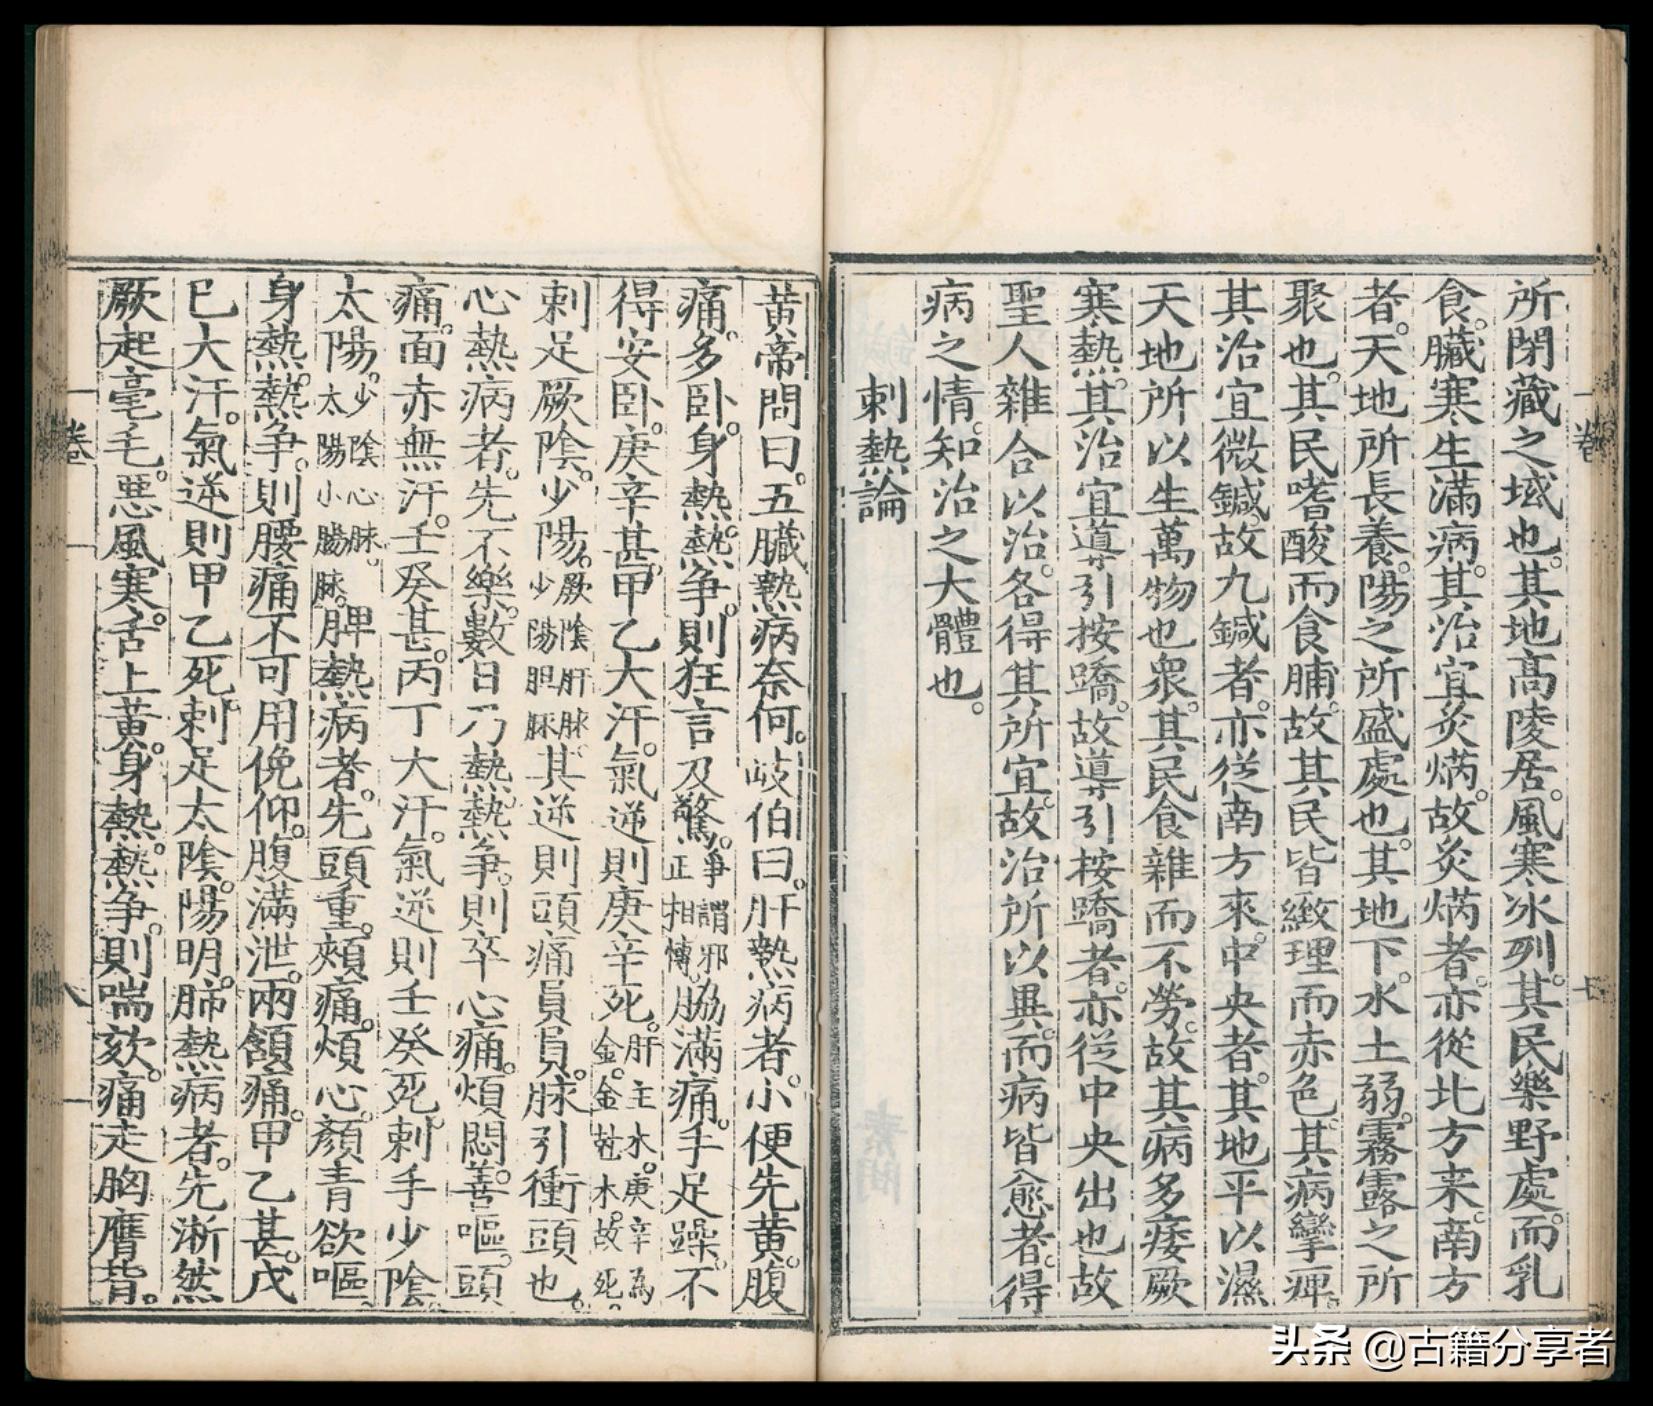 所閉藏之域也。其地高陵居。風寒冰冽。其民樂野處。而乳
食。臟寒生滿病。其治宜灸焫。故灸焫者。亦從北方来。南方
者。天地所長養。陽之所盛處也。其地下。水土弱。霧露之所
聚也。其民嗜酸而食脯。故其民皆緻理而赤色。其病攣痺。
其治宜微鍼。故九鍼者。亦從南方來。中央者。其地平以濕
天地所以生萬物也衆。其民食雜而不勞。故其病多痿厥
寒熱。其治宜導引按蹻。故導引按蹻者。亦從中央出也故
聖人雜合以治。各得其所宜。故治所以異。而病皆愈者。得
病之情。知治之大體也。
刺熱論
黄帝問曰。五臟熱病奈何。岐伯曰。肝熱病者。小便先黄。腹
痛。多卧。身熱。熱争。則狂言及驚。争謂邪正相愽。脇滿痛。手足躁。不
得安卧。庚辛甚。甲乙大汗。氣逆則庚辛死。肝主木。庚辛為金。金尅木。故死。
刺足厥陰。少陽。厥陰肝脉。少陽胆脉。其逆則頭痛員員。脉引衝頭也。
心熱病者。先不樂。數日乃熱。熱争。則卒心痛。煩悶。善嘔。頭
痛。面赤無汗。壬癸甚。丙丁大汗。氣逆則壬癸死。刺手少陰。
太陽。少陰心脉。太陽小膓脉。脾熱病者。先頭重。頰痛。煩心。顏青欲嘔。
身熱。熱争。則腰痛不可用俛仰。腹滿泄。兩頷痛。甲乙甚。戊
巳大汗。氣逆則甲乙死。刺足太陰。陽明。肺熱病者。先淅然
厥起毫毛。惡風寒。舌上黄。身熱。熱争。則喘欬。痛走胸膺背。
卷一
七
卷一
八
头条 @古籍分享者